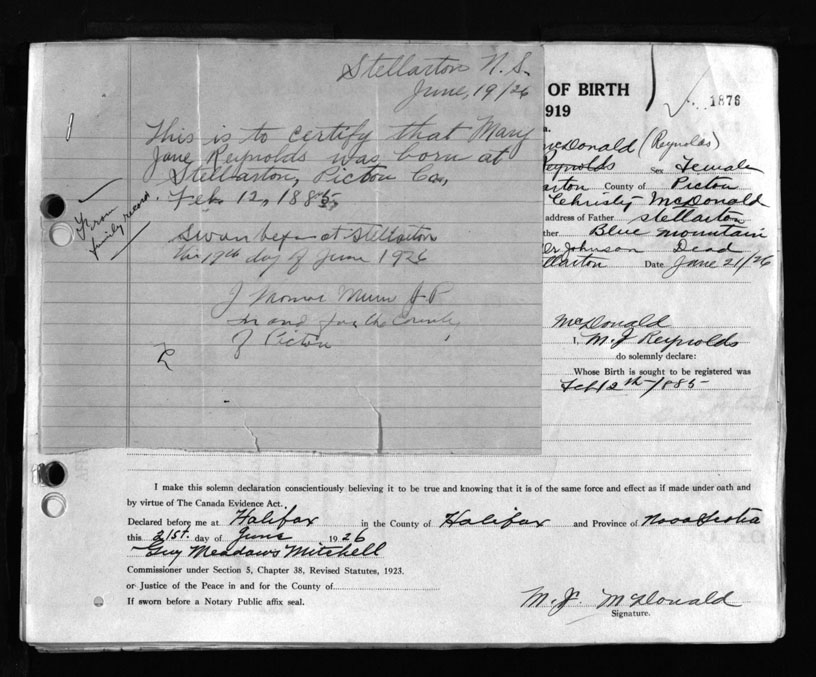 Stellarton N.S.
June, 19/26
This is to certify that Mary
Jane Reynolds was born at
Stellarton, Pictou Co,
Feb. 12, 1885,
From
family record.
Swan before at Stellarton
this 19th day of June 1926
J Thomas J.P.
In and for the County
of Pictou
OF BIRTH
919
1876
McDonald (Reynolds)
Reynolds Sex Female
arton County of Pictou
Christy McDonald
address of Father Stellarton
ther Blue mountain
Johnson Dead
llarton Date June 21/26
McDonald
I, M. J Reynolds
do solemnly declare:
Whose Birth is sought to be registered was
Feb 12th 1885
I make this solemn declaration conscientiously believing it to be true and knowing that it is of the same force and effect as if made under oath and
by virtue of The Canada Evidence Act.
Declared before me at Halifax in the County of Halifax and Province of Nova Scotia
this 21st. day of June 1926
Guy Meadows Mitchell
Commissioner under Section 5, Chapter 38, Revised Statutes, 1923.
or Justice of the Peace in and for the County of
If sworn before a Notary Public affix seal.
M. J. McDonald
Signature.